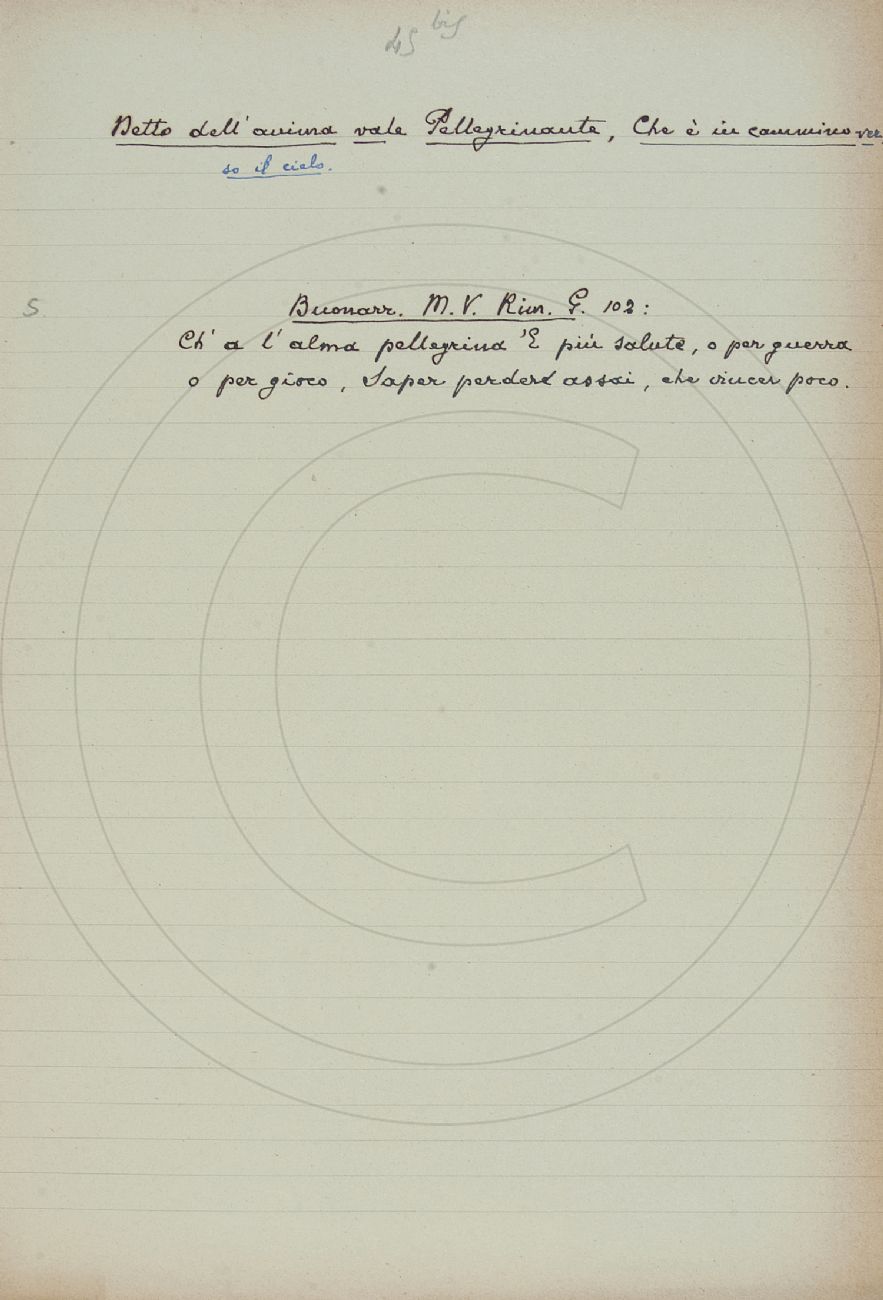 45 bis
Detto dell'anima vale Pellegrinante, Che è in cammino ver
so il cielo.
S
Buonarr. M. V. Rim. G. 102:
Ch' a l' alma pellegrina 'E più salute, o per guerra
o per gioco, Saper perdere assai, che vincer poco.